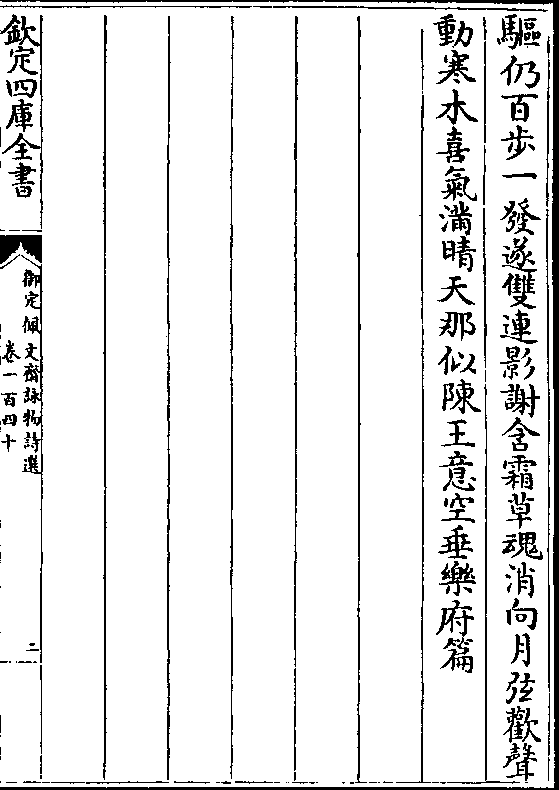 驅仍百步一發遂雙連影謝含霜草魂消向月弦歡聲
動寒水喜氣滿晴天那似陳王意空垂樂府篇
欽定四庫全書
御定佩文齋詠物詩選
卷一百四十
二